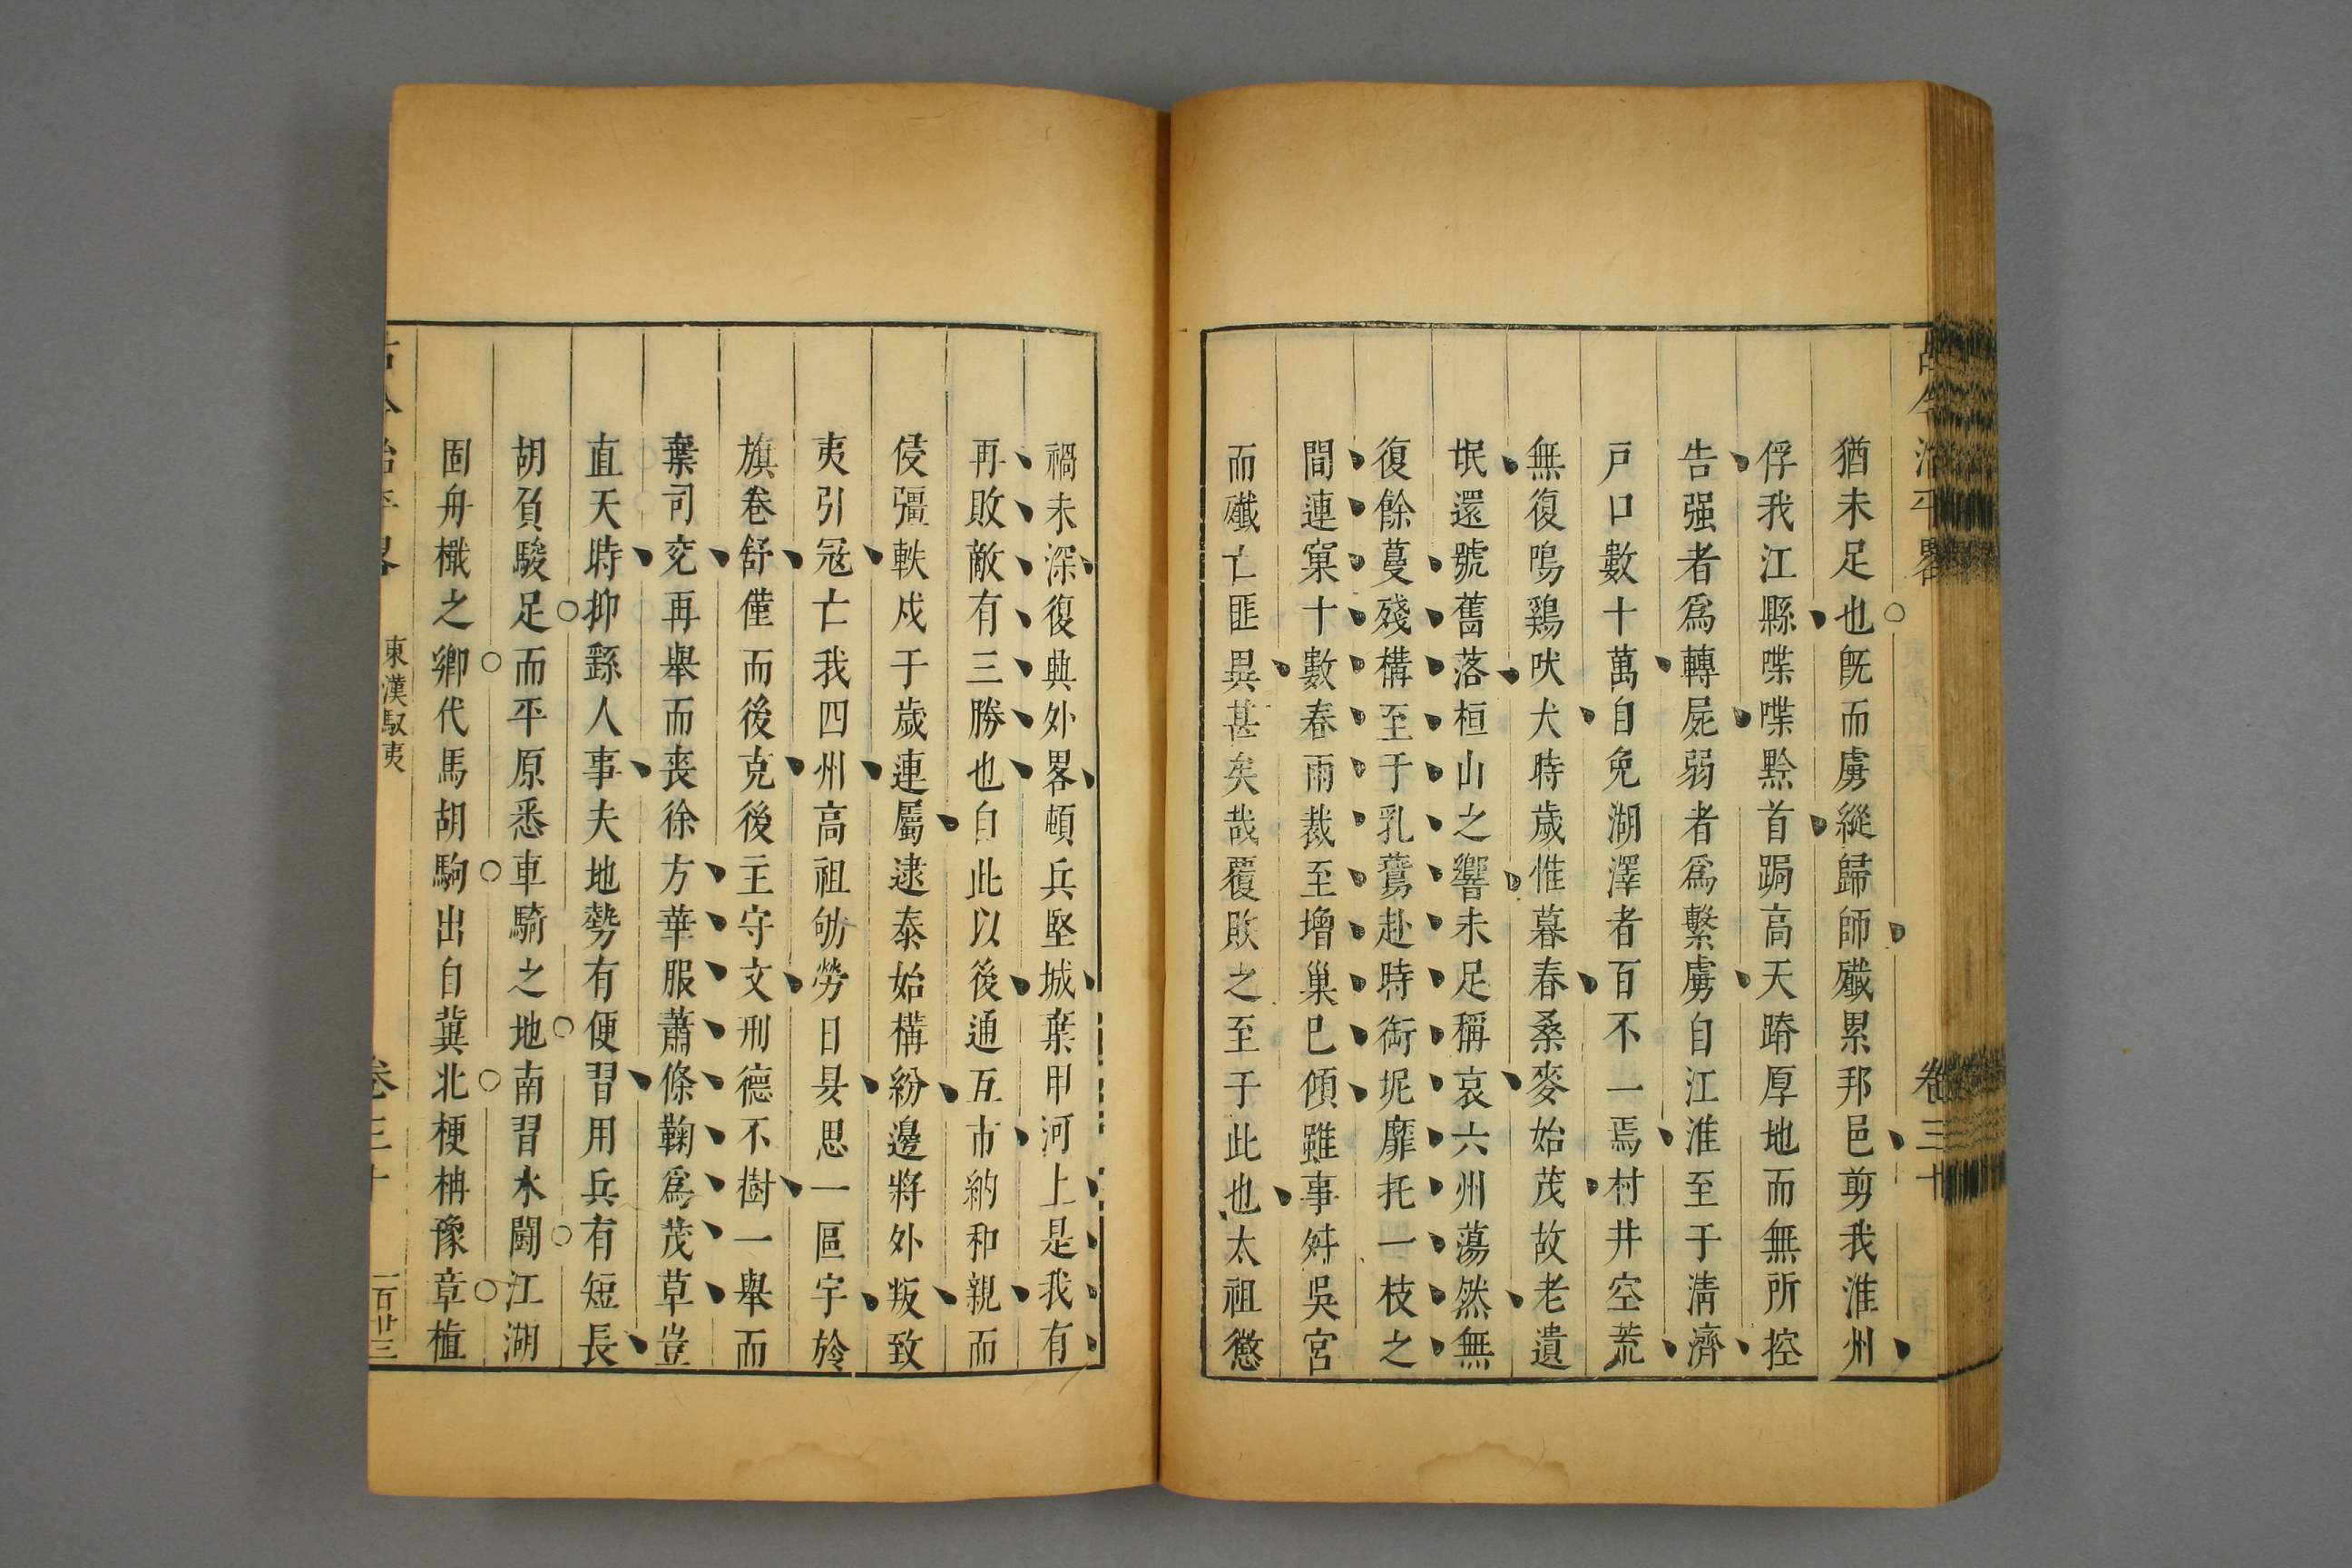 古今治平畧
卷三十
猶未足也既而虜縱歸師殲累邦邑剪我淮州
俘我江縣喋喋黔首跼高天蹐厚地而無所控
告强者為轉屍弱者為繫虜自江淮至于清濟
戸口數十萬自免湖澤者百不一焉村井空荒
無復鳴鷄吠犬時歲惟暮春桑麥始茂故老遺
氓還號舊落桓山之響未足稱哀六州蕩然無
復餘蔓殘構至于乳鷰赴時銜坭靡托一枝之
間連窠十數春雨裁至增巢已傾雖事舛吳宮
而殲亡匪異甚矣哉覆敗之至于此也太祖懲
禍未深復興外畧頓兵堅城棄甲河上是我有
再敗敵有三勝也自此以後通互市納和親而
侵彊軼戍于歲連屬逮泰始構紛邊將外叛致
夷引寇亡我四州高祖劬勞日昃思一區宇於
旗卷舒僅而後克後主守文刑德不樹一舉而
葉司兖再舉而喪徐方華服蕭條鞠為茂草豈
直天時抑繇人事夫地勢有便習用兵有短長
胡負駿足而平原悉車騎之地南習水鬪江湖
固舟檝之鄉代馬胡駒出自冀北梗柟豫章植
古今治平畧
東漢馭夷
卷三十
一百廿三